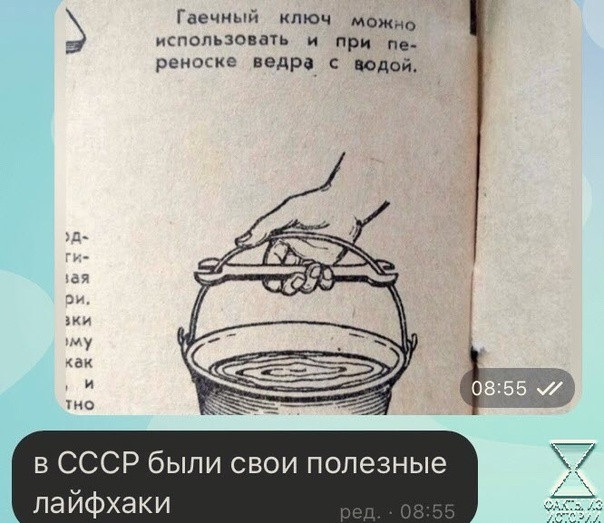 Гаечный ключ можно
использовать и при пе-
реноске ведра с водой.
од-
ти-
ая
ри.
зки
ому
как
, и
тно
08:55
в СССР были свои полезные
лайфхаки
ред. · 08:55
ФАКТЫ ИЗ
ИСТОРИИ